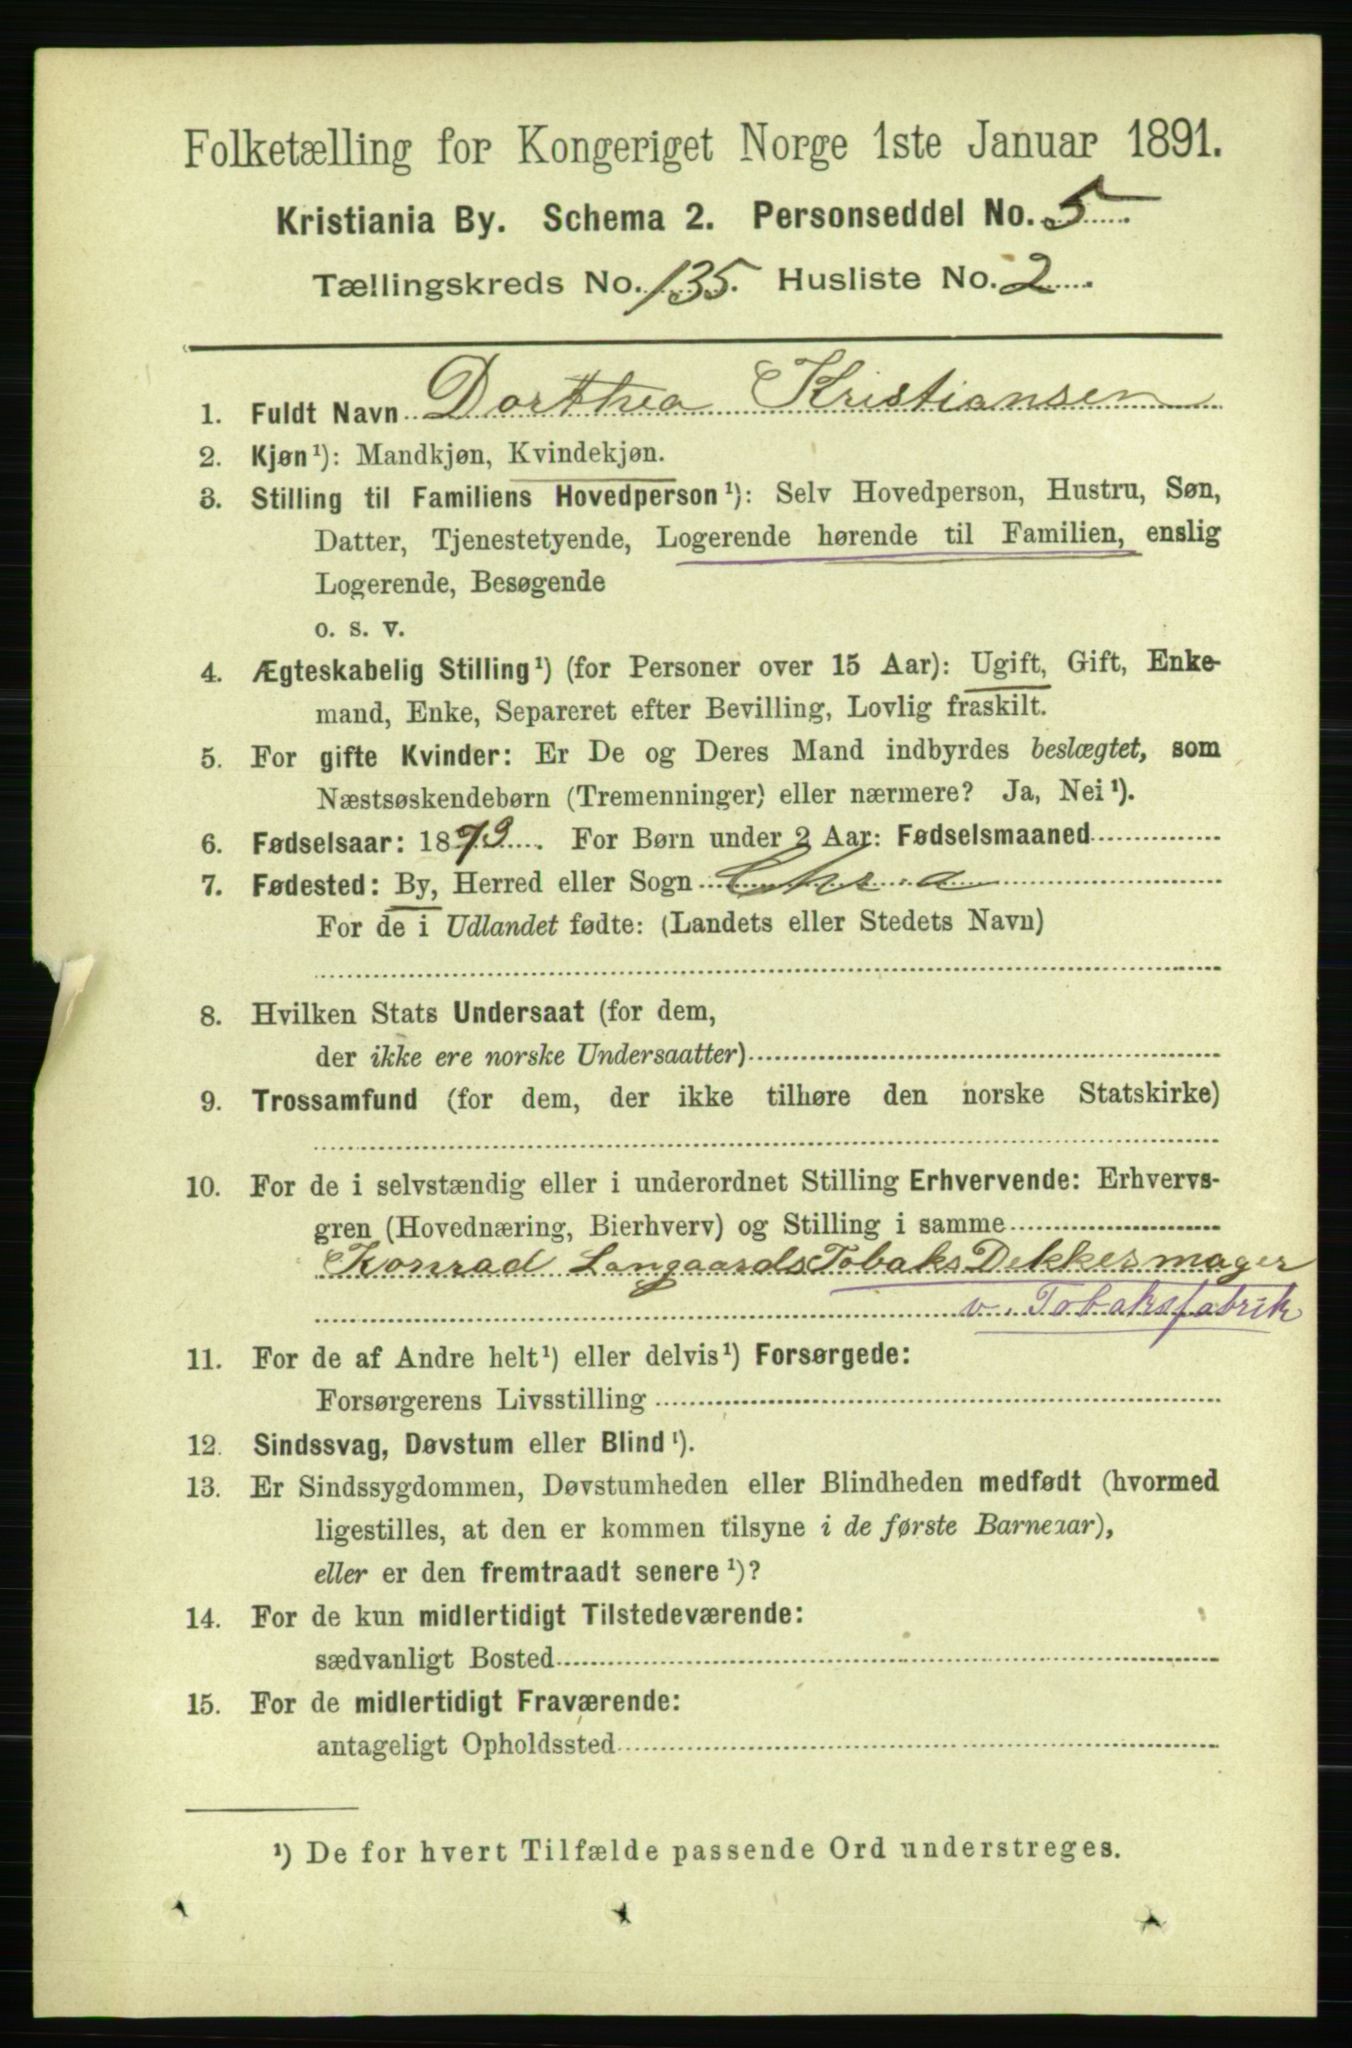 Folketælling for Kongeriget Norge 1ste Januar 1891.
Kristiania By. Schema 2. Personseddel No. 5
Tællingskreds No. 135. Husliste No. 2
1. Fuldt Navn Dorthea Kristiansen
2. Kjøn¹): Mandkjøn, Kvindekjøn.
3. Stilling til Familiens Hovedperson¹): Selv Hovedperson, Hustru, Søn,
Datter, Tjenestetyende, Logerende hørende til Familien, enslig
Logerende, Besøgende
o. s. v.
4. Ægteskabelig Stilling¹) (for Personer over 15 Aar): Ugift, Gift, Enke-
mand, Enke, Separeret efter Bevilling, Lovlig fraskilt.
5. For gifte Kvinder: Er De og Deres Mand indbyrdes beslægtet, som
Næstsøskendebørn (Tremenninger) eller nærmere? Ja, Nei¹).
6. Fødselsaar: 1873. For Børn under 2 Aar: Fødselsmaaned
7. Fødested: By, Herred eller Sogn Chra
For de i Udlandet fødte: (Landets eller Stedets Navn)
8. Hvilken Stats Undersaat (for dem,
der ikke ere norske Undersaatter)
9. Trossamfund (for dem, der ikke tilhøre den norske Statskirke)
10. For de i selvstændig eller i underordnet Stilling Erhvervende: Erhvervs-
gren (Hovednæring, Bierhverv) og Stilling i samme
Konrad Langaards Tobaks Dekkesmager
v. Tobaksfabrik
11. For de af Andre helt¹) eller delvis¹) Forsørgede:
Forsørgerens Livsstilling
12. Sindssvag, Døvstum eller Blind¹).
13. Er Sindssygdommen, Døvstumheden eller Blindheden medfødt (hvormed
ligestilles, at den er kommen tilsyne i de første Barneaar),
eller er den fremtraadt senere¹)?
14. For de kun midlertidigt Tilstedeværende:
sædvanligt Bosted
15. For de midlertidigt Fraværende:
antageligt Opholdssted
¹) De for hvert Tilfælde passende Ord understreges.